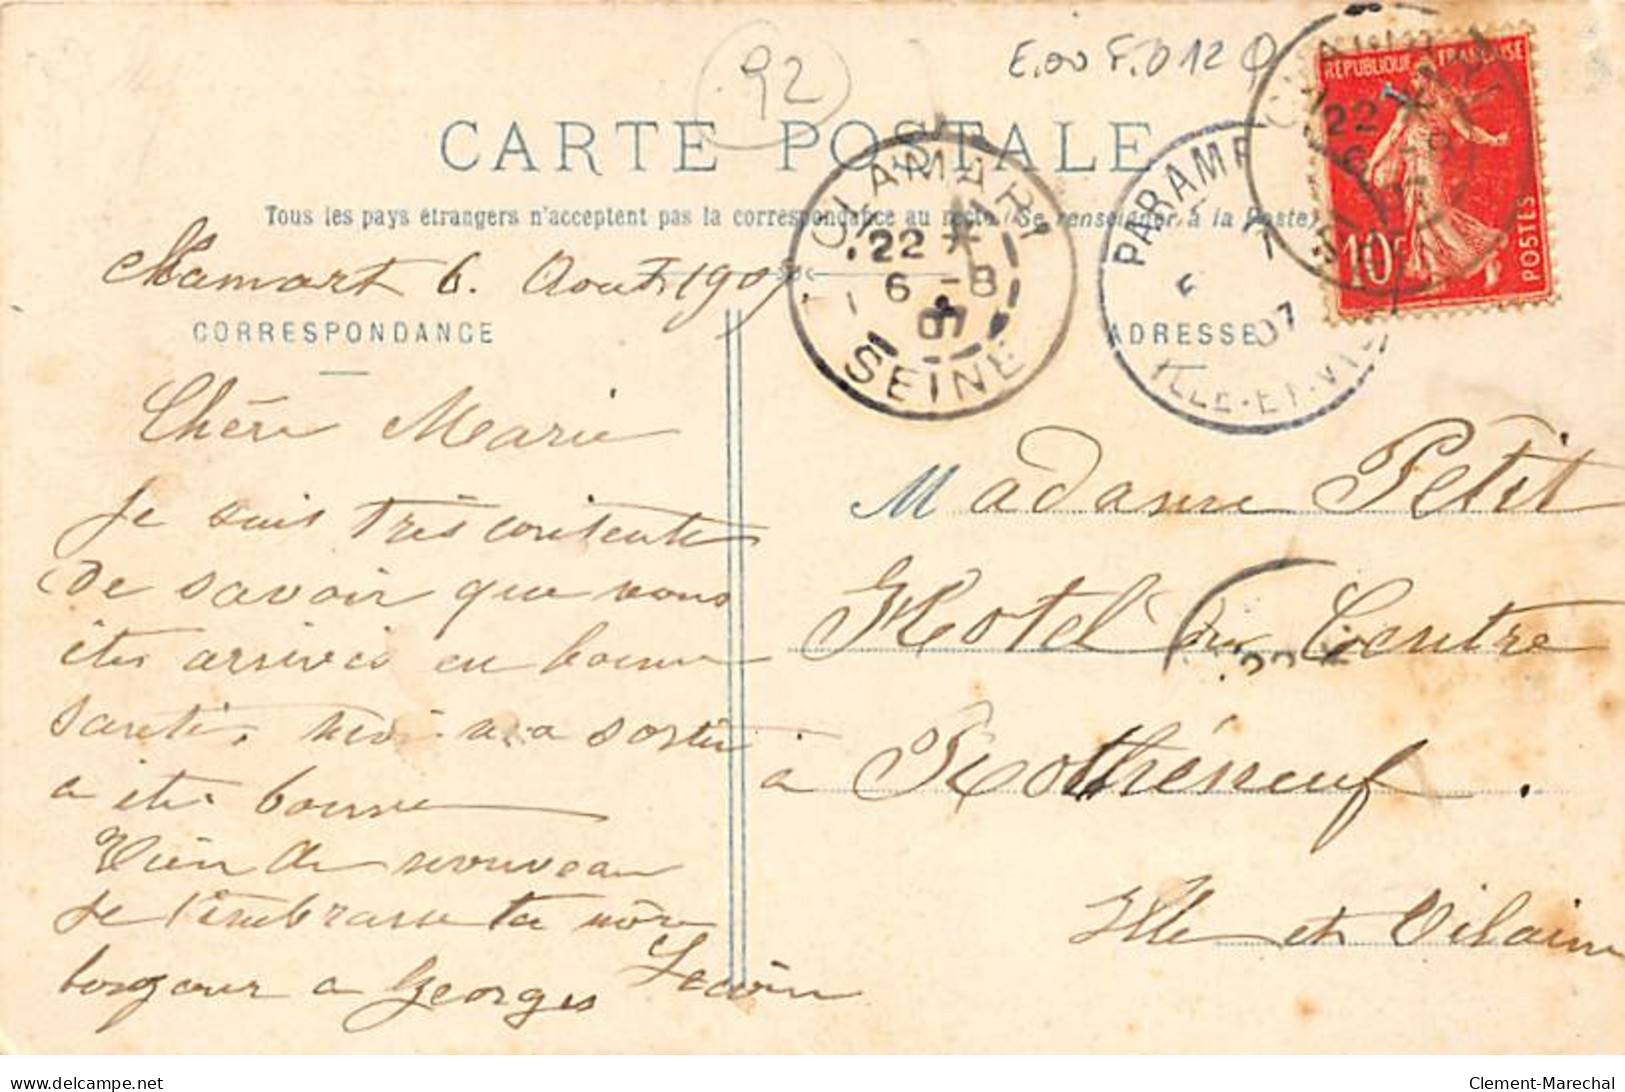 92
E.00 F.D 12 O
CARTE POSTALE
Tous les pays étrangers n'acceptent pas la correspondance au recto (Se renseigner à la Poste)
Clamart 6. Aout 1907.
CORRESPONDANCE
ADRESSE
CLAMART
22 *
6 - 8
07
SEINE
PARAME
07
ILLE-ET-VIL
RÉPUBLIQUE FRANÇAISE
10c
POSTES
CLAMART
22 *
6 - 8
Chère Marie
Je suis très contente
de savoir que vous
êtes arrivés en bonne
santé, moi ma sortie
a été bonne
Rien de nouveau
Je t'embrasse ta mère
bonjour a Georges
Madame Petit
Hotel du Centre
a Rothéneuf.
Ille et Vilaine
delcampe.net
Clement-Marechal